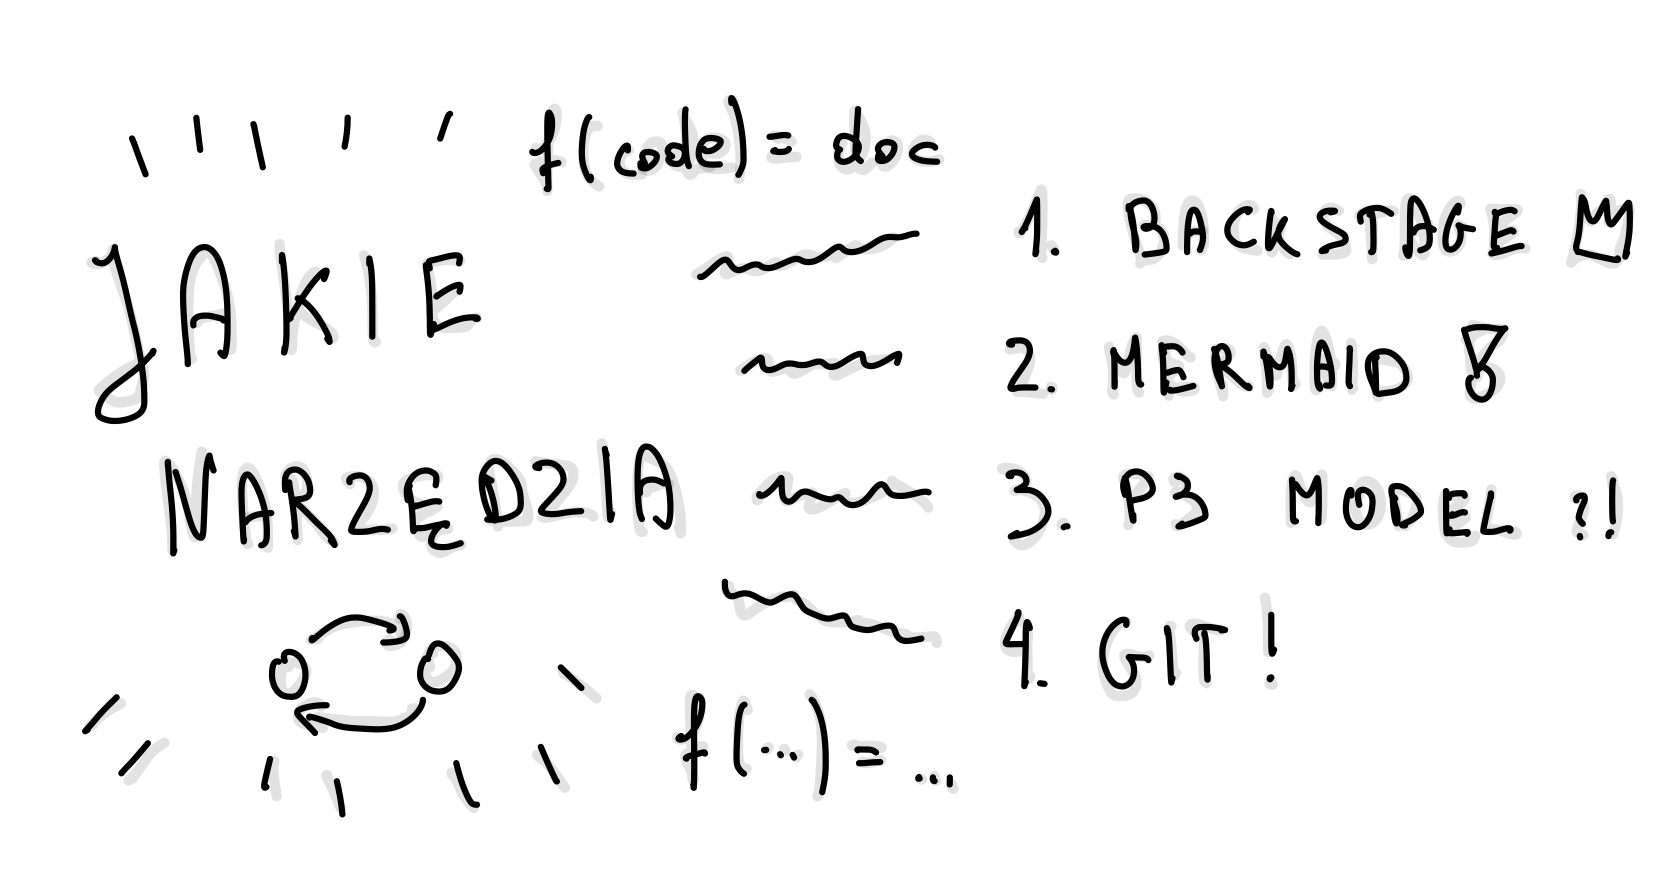 f(code) = doc
JAKIE
NARZĘDZIA
1. BACKSTAGE
2. MERMAID !
3. P3 MODEL ?!
4. GIT !
f(...) = ...